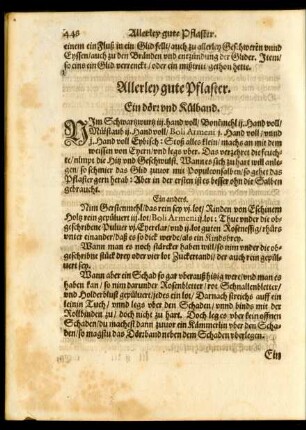 446 Allerley gute Pflaster.
einem ein Fluß in ein Glid felt/ auch zu allerley Geschwern vnnd
Eyssen/ auch zu den Bränden vnd entzündung der Glider. Item/
so eins ein Glid verrenckt / oder ein mißtritt gethon hette.
Allerley gute Pflaster.
Ein dörr vnd Külband.
NIm Schwartzwurtz iij. hand voll/ Bonenmehl ij. Hand voll/
Mülstaub ij. Hand voll/ Boli Armeni j. Hand voll / vnnd
j. Hand voll Ephisch: Stoß alles klein / mach an mit dem
weissen von Eyern/ vnd legs vber. Das verzehret die feuch-
te/ nimpt die Hitz vnd Geschwulst. Wann es sich zu hart will anle-
gen/ so schmier das Glid zuuor mit Populeonsalben/ so gehet das
Pflaster gern herab: Aber in der ersten ist es besser ohn die Salben
gebraucht.
Ein anders.
Nim Gerstenmehl/ das rein sey vj. lot/ Rinden von Eschinem
Holtz rein gepüluert iij. lot/ Boli Armeni ij. lot: Thue vnder die ob-
geschribene Puluer vj. Eyerklar/ vnd ij. lot guten Rosenessig/ rhürs
vnter einander/ daß es so dick werde/ als ein Kindsbrey.
Wann man es noch stärcker haben will/ so nim vnder die ob-
geschribne stück drey oder vier lot Zuckerrandi/ der auch rein gepül-
uert sey.
Wann aber ein Schad so gar vberauß hitzig were/ vnd man es
haben kan / so nim darunder Rosenbletter / rot Schnallenbletter/
vnd Holderblüst gepüluert/ jedes ein lot / Darnach streichs auff ein
leinin Tuch / vnnd legs vber den Schaden / vnnd binds mit der
Rollbinden zu/ doch nicht zu hart. Doch leg es vber kein offnen
Schaden/ du machest dann zuuor ein Kämmerlin vber den Scha-
den/ so magstu das Dörrband neben dem Schaden vberlegen.
Ein